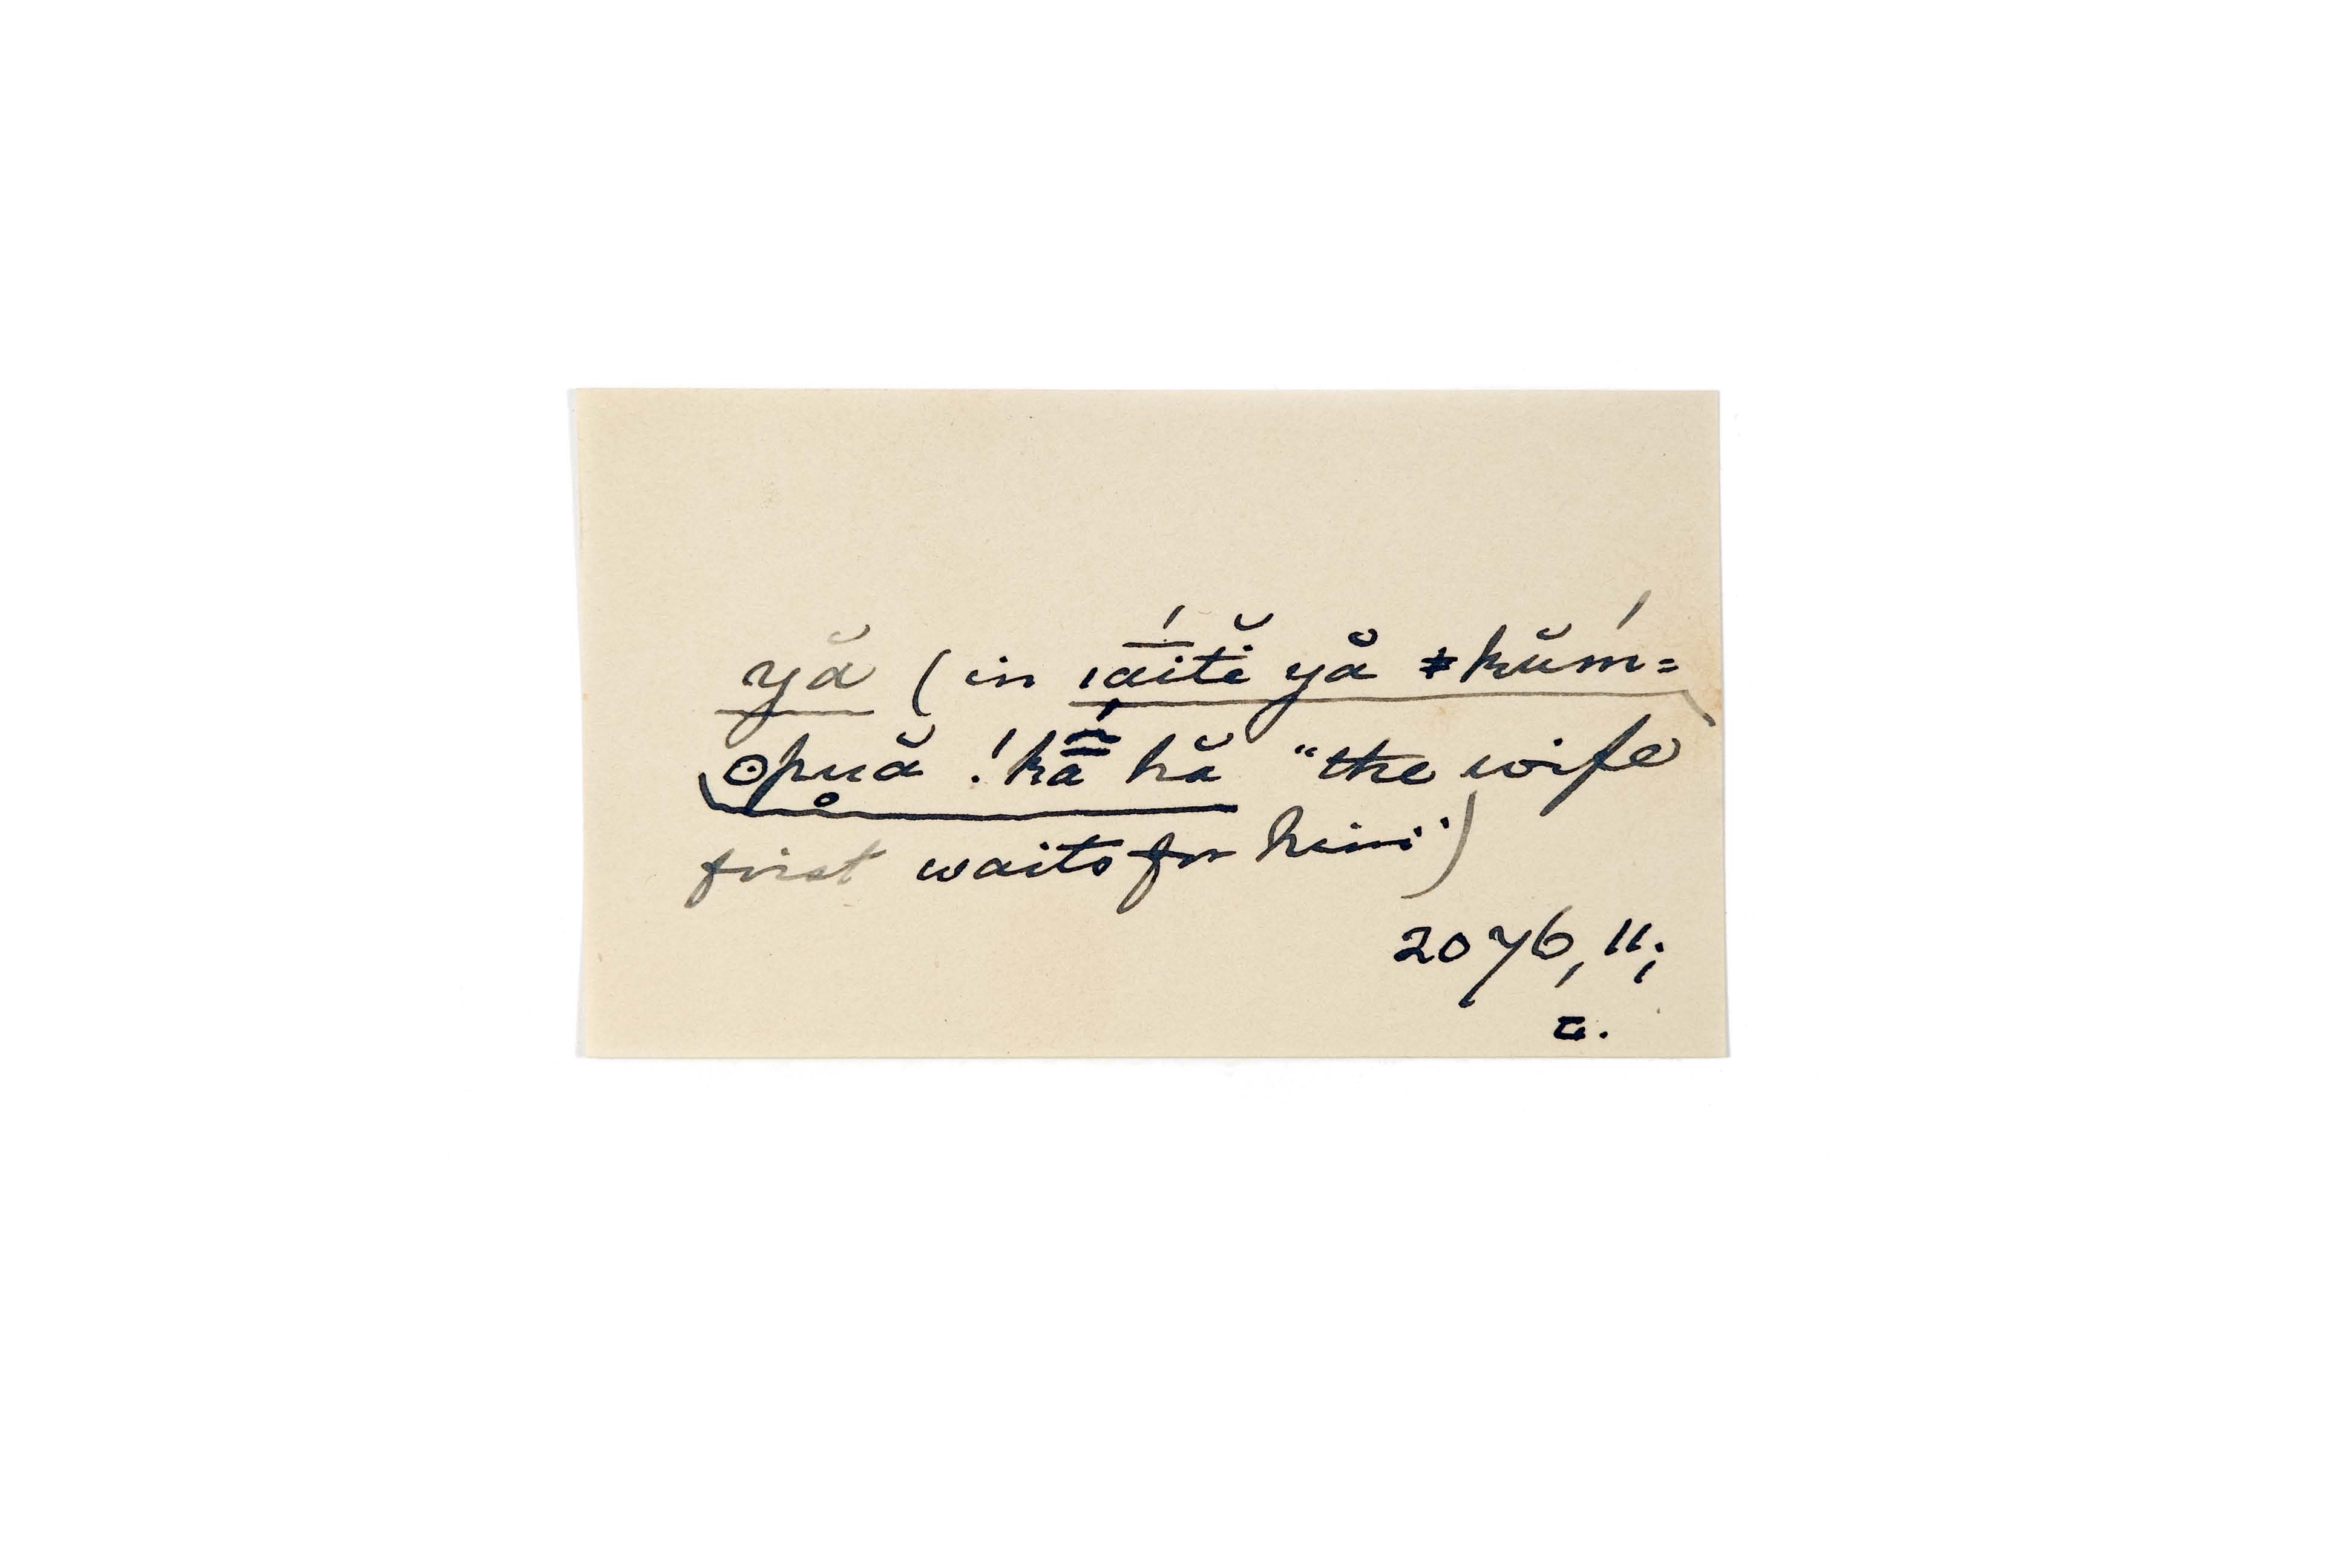 yă (in ǀā́itĭ yå ǂkŭḿ=
ʘpuă ǃkā̃́ hă "the wife
first waits for him")
2076, 11;
c.